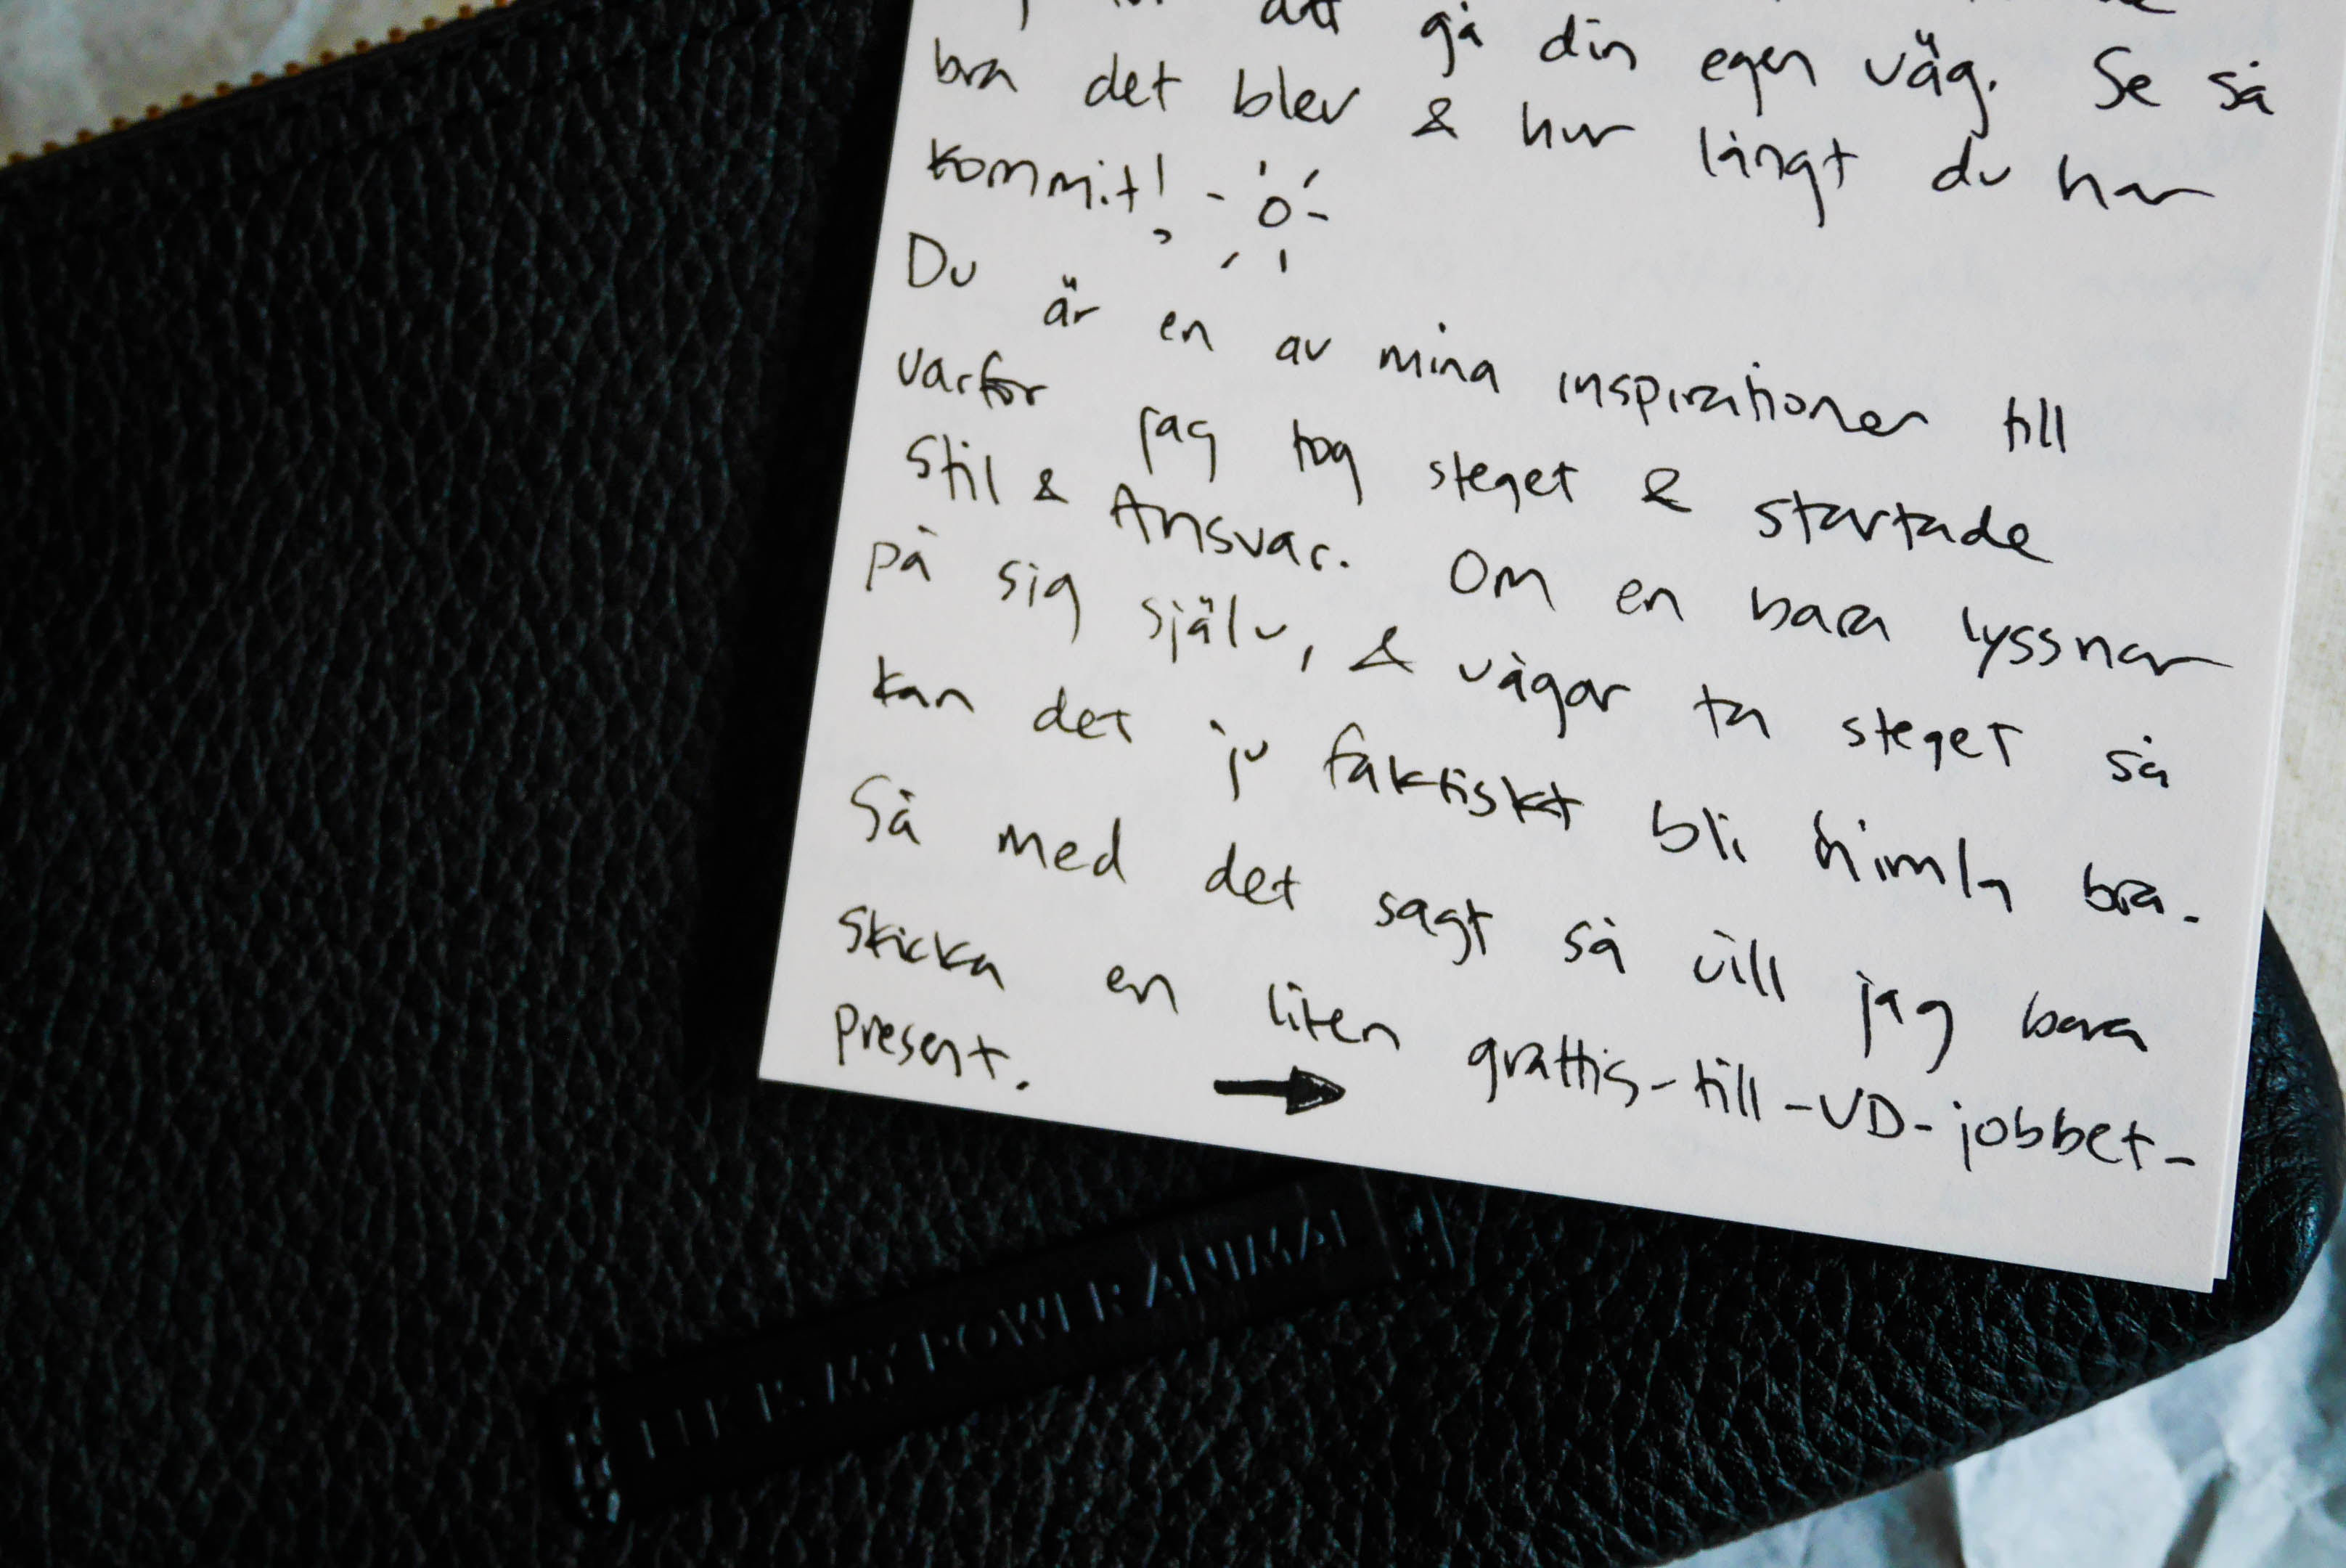 att gå din egen väg. Se så
bra det blev & hur långt du har
kommit!
Du är en av mina inspirationer till
varför jag tog steget & startade
Stil & Ansvar. Om en bara lyssnar
på sig själv, & vågar ta steget så
kan det ju faktiskt bli himla bra.
Så med det sagt så vill jag bara
skicka en liten grattis-till-VD-jobbet-
present.
IS MY POWER ANIMAL